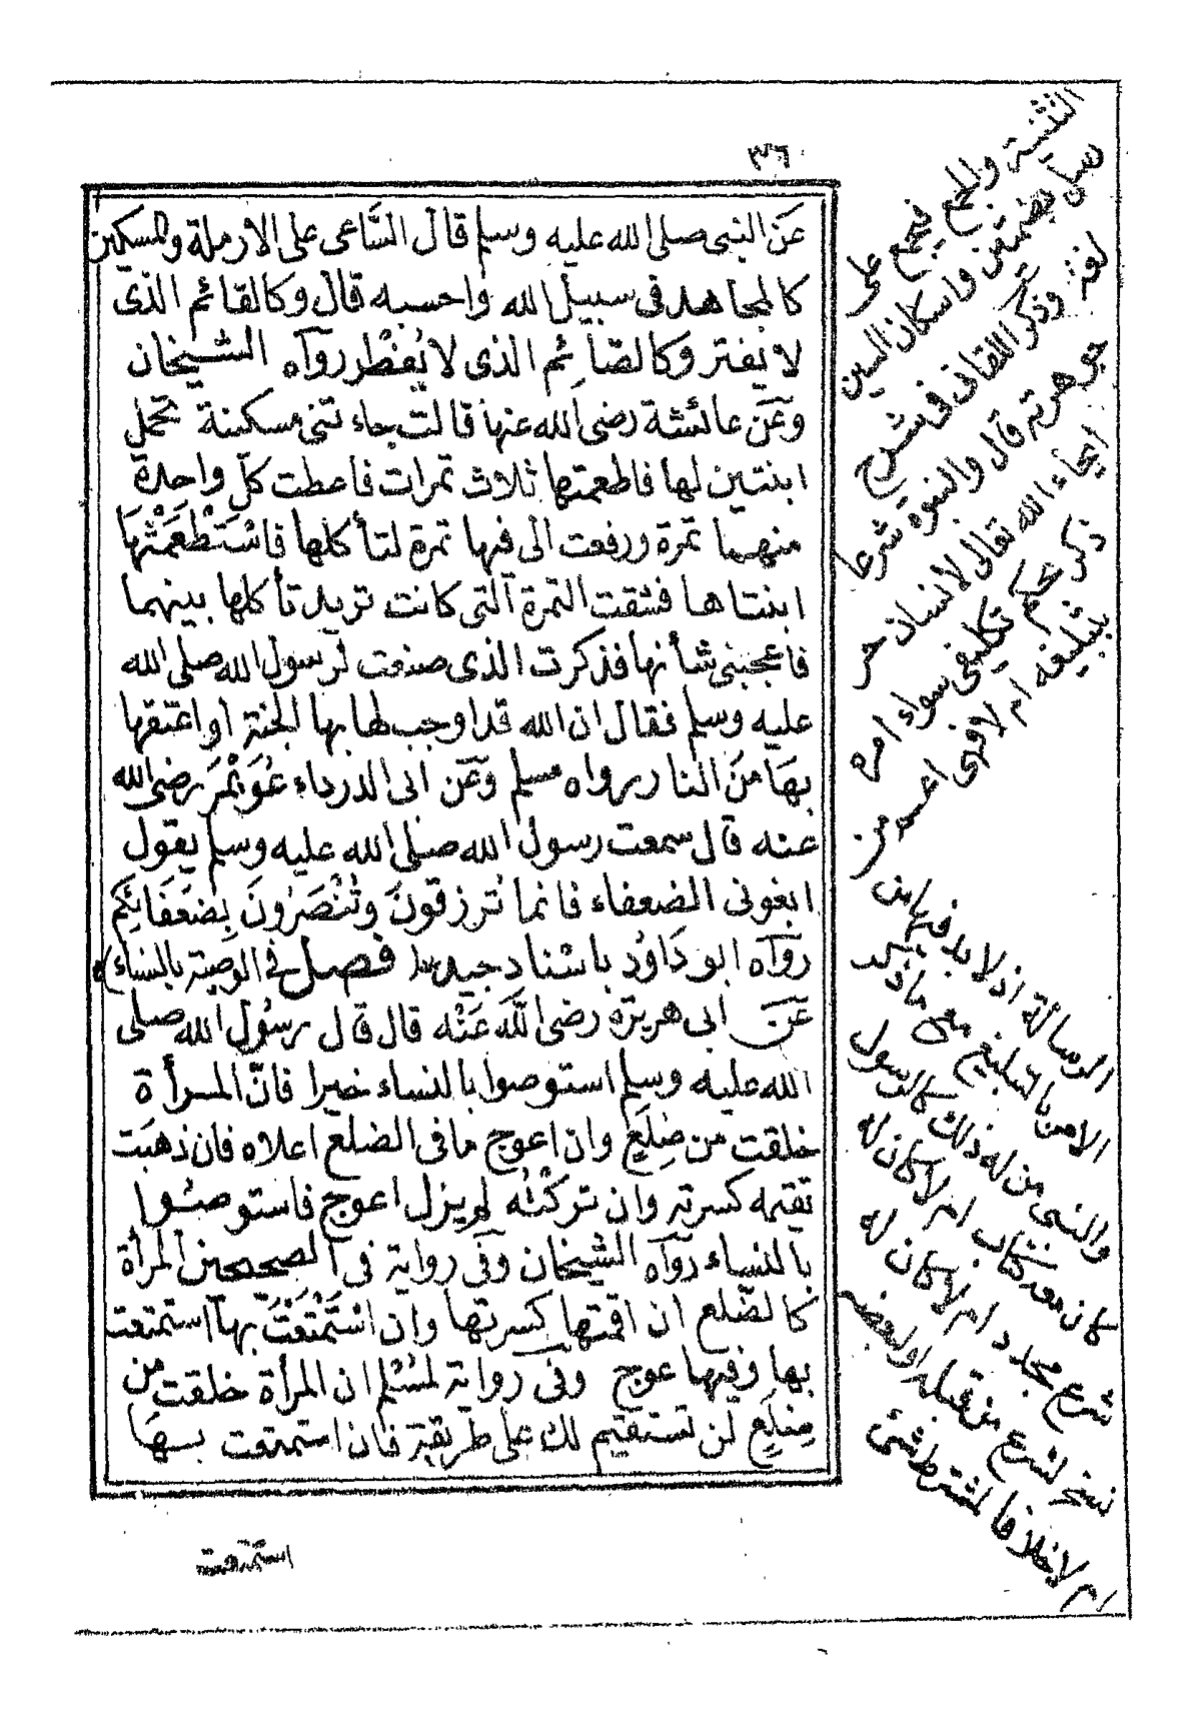 ٣٦
عَنِ النبى صلى الله عليه وسلم قال السَّاعى على الارملة والمسكين
كالمجاهد فى سبيل الله واحسبه قال وكالقائم الذى
لا يفتر وكالصّائم الذى لا يُفْطِر رواه الشيخان
وعَنْ عائشة رضى الله عنها قالت جاءتنى مسكينة تحمل
ابنتين لها فاطعمتها ثلاث تمرات فاعطت كلّ واحدة
منهما تمرة ورفعت الى فيها تمرة لتأكلها فاسْتَطْعَمَتْهَا
ابنتاها فشقت التمرة التى كانت تريد تأكلها بينهما
فاعجبنى شأنها فذكرت الذى صنعت لرسول الله صلى الله
عليه وسلم فقال ان الله قد اوجب لها بها الجنة او اعتقها
بهَا منَ النار رواه مسلم وعَنْ ابى الدرداء عُوَيْمَر رضى الله
عنه قال سمعت رسول الله صلى الله عليه وسلم يقول
ابغونى الضعفاء فانما تُرزقونَ وتُنْصَرُونَ بِضُعَفَائِكُم
رواه ابو دَاوُد باسناد جيد فصل فى الوصية بالنساء)
عَنْ ابى هريرة رضى اللّه عَنْه قال قال رسُول الله صلى
الله عليه وسلم استوصوا بالنساء خيرا فانّ المرأة
خلقت من ضِلَعٍ وان اعوج ما فى الضلع اعلاه فان ذهبَت
تقيمه كسرته وان تركْتَه لم يزل اعوج فاستوصُوا
بالنساء رواه الشيخان وفى رواية فى الصحيحين المرأة
كالضّلع ان اقمتها كسرتها وان اسْتَمْتَعْتَ بها استمتعت
بها وفيها عوج وفى رواية لمسْلم ان المرأة خلقت من
ضِلَعٍ لن تستقيم لك على طريقة فان استمتعت بهَا
استمتعت
التثنية والجمع فيجمع على
رسل بضمتين واسكان السين
لغة وذكر اللقانى فى شرح
جوهرته قال والنبوة شرعا
ايحاء الله تعالى لانسان حر
ذكر بحكم تكليفى سواء امره
بتبليغه ام لا فهى اعم من
الرسالة اذ لا بد فيها من
الامر بالتبليغ مع ما ذكر
والنبى من له ذلك كالرسول
كان معه كتاب ام لا كان له
شرع مجدد ام لا كان له
نسخ لشرع من قبله او لبعضه
ام لا خلافا لمشترط شئ